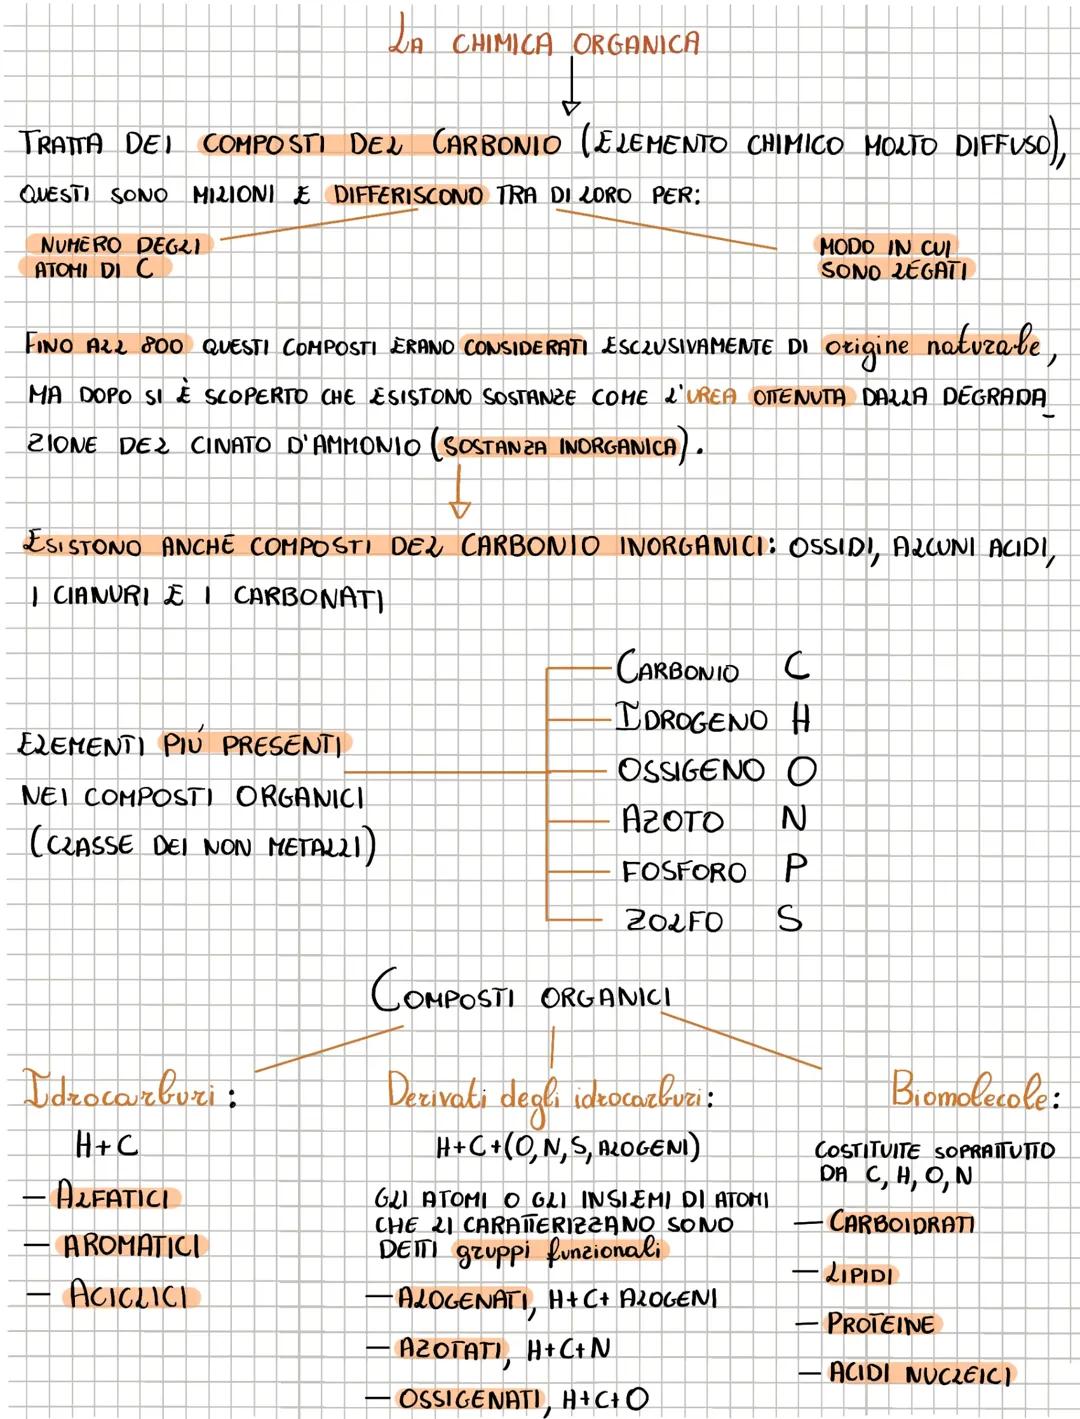 LA CHIMICA ORGANICA
TRATTA DEI COMPOSTI DEL CARBONIO (ELEMENTO CHIMICO MOLTO DIFFUSO),
QUESTI SONO MILIONI E DIFFERISCONO TRA DI LORO PER:
NUMERO DEGLI
ATOMI DI C
MODO IN CUI
SONO LEGATI
FINO ALL 800 QUESTI COMPOSTI ERANO CONSIDERATI ESCLUSIVAMENTE DI origine naturale,
MA DOPO SI È SCOPERTO CHE ESISTONO SOSTANZE COME L'UREA OTTENUTA DALLA DEGRADA_
ZIONE DEL CINATO D'AMMONIO (SOSTANZA INORGANICA).
ESISTONO ANCHE COMPOSTI DEL CARBONIO INORGANICI: OSSIDI, ALCUNI ACIDI,
I CIANURI E I CARBONATI
ELEMENTI PIÚ PRESENTI
NEI COMPOSTI ORGANICI
(CLASSE DEI NON METALLI)
CARBONIO C
IDROGENO H
OSSIGENO O
AZOTO N
FOSFORO P
ZOLFO S
COMPOSTI ORGANICI
Idrocarburi:
H+C
- ALFATICI
- AROMATICI
- ACICLICI
Derivati degli idrocarburi:
H+C+(O, N, S, ALOGENI)
GLI ATOMI O GLI INSIEMI DI ATOMI
CHE LI CARATTERIZZANO SONO
DETTI gruppi funzionali
- ALOGENATI, H+C+ ALOGENI
- AZOTATI, H+C+N
- OSSIGENATI, H+C+O
Biomolecole:
COSTITUITE SOPRATTUTTO
DA C, H, O, N
- CARBOIDRATI
- LIPIDI
- PROTEINE
- ACIDI NUCLEICI